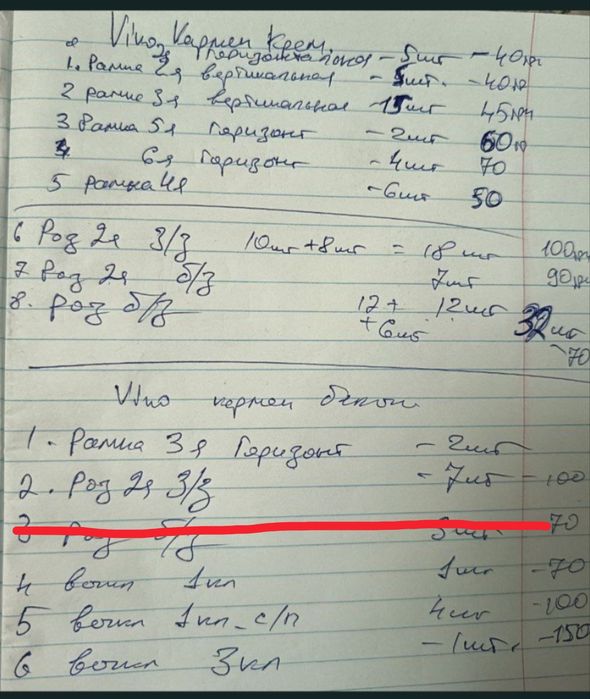 Viko Кармен Крем.
2я горизонтальная - 5шт - 40грн
1. Рамка 2я вертикальная - 5шт. - 40гр
2 рамка 3я вертикальная - 15шт 45грн
3 Рамка 5я Горизонт - 2шт 60гр
4 6я Горизонт - 4шт 70
5 рамка 4я - 6шт 50
6 Роз 2я З/з 10шт + 8шт = 18шт 100грн
7 Роз 2я б/з 7шт 90грн
8. роз б/з 12 + 12шт 32шт
+ 6шт - 70
Viko кармен
1. Рамка 3я Горизонт - 2шт
2. Роз 2я З/з - 7шт - 100
3 роз б/з 70
4 вокл 1кл 1шт - 70
5 вокл 1кл с/п 4шт - 100
6 вокл 3кл - 1шт. - 150